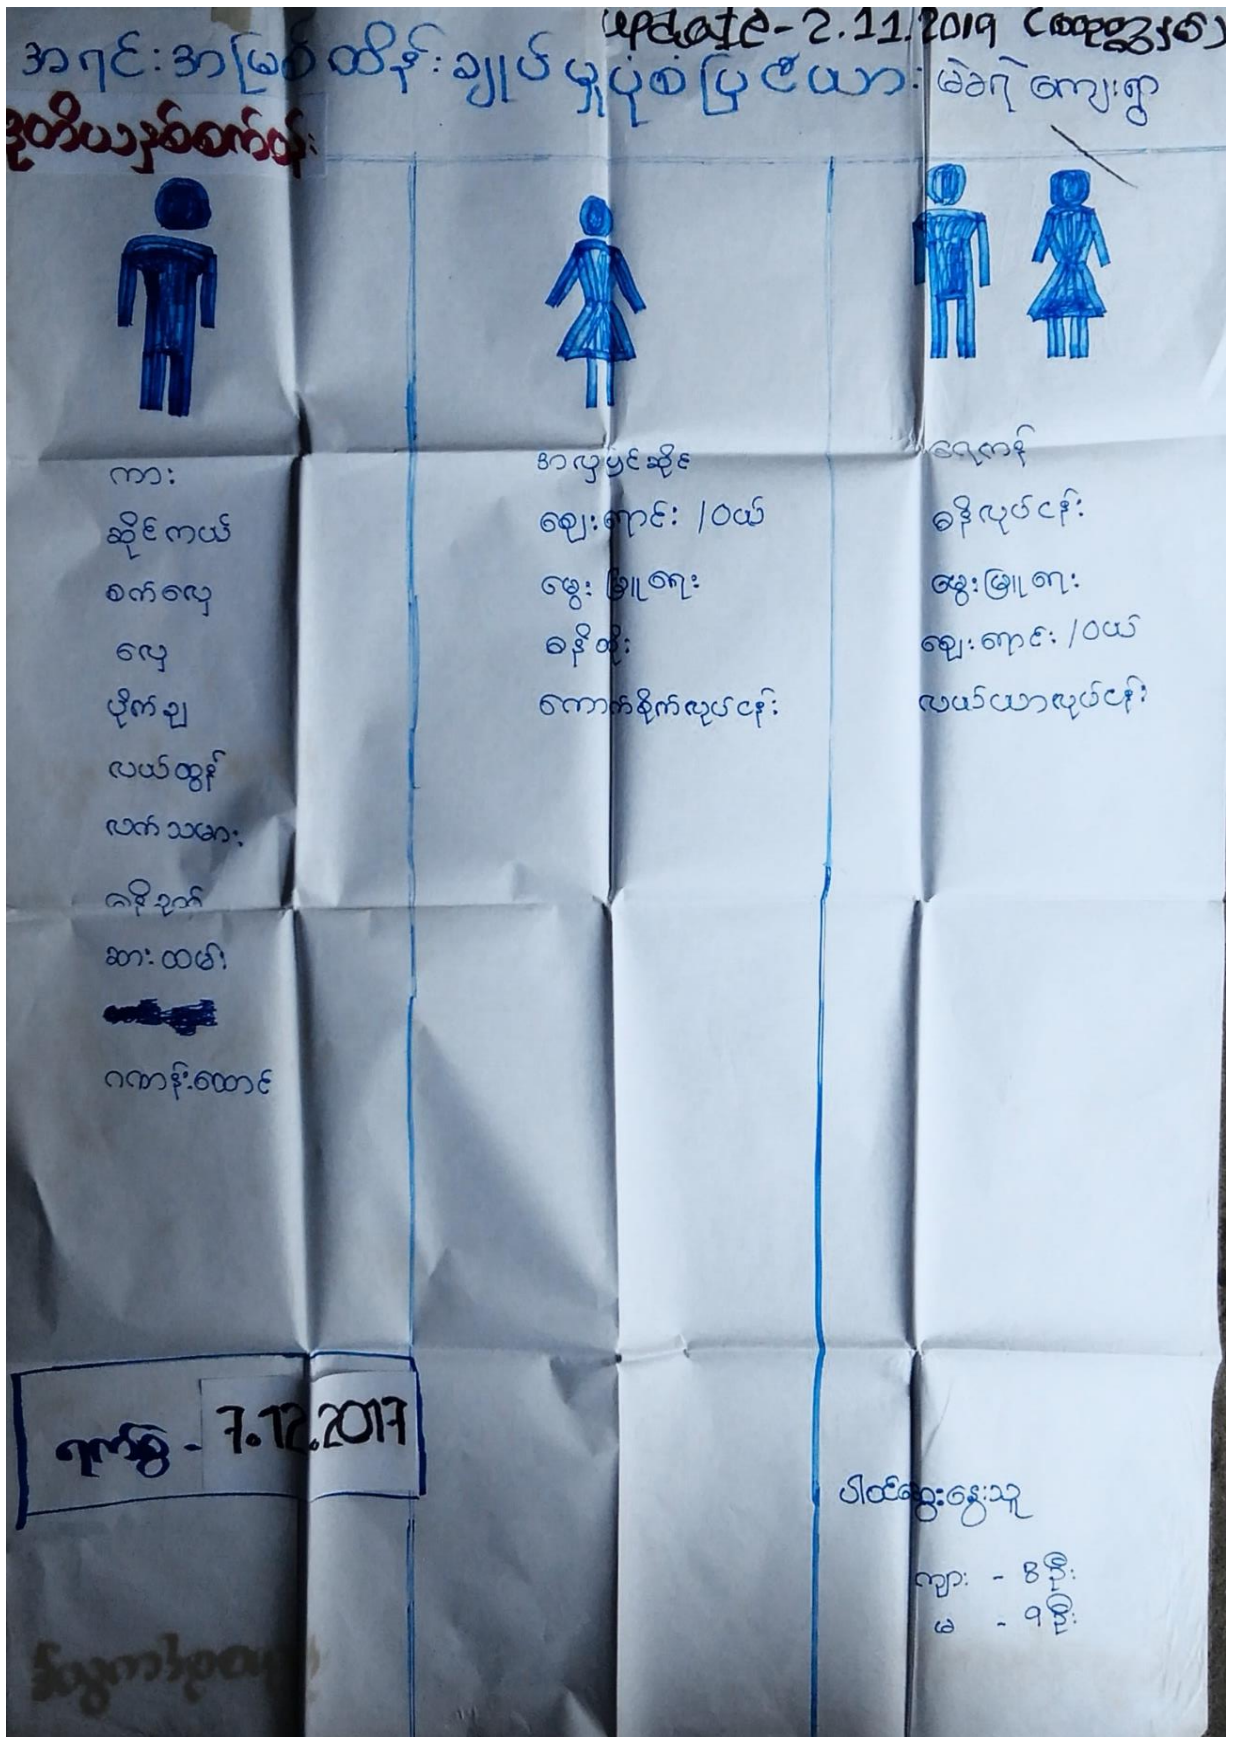 update - 2.11.2019
အရင်းအမြစ်ထိန်းချုပ်မှုပုံစံပြဇယား မဲခရဲ ကျေးရွာ
ဒုတိယနှစ်စက်ဝန်း
ကား
ဆိုင်ကယ်
စက်လှေ
လှေ
ပိုက်ချ
လယ်ထွန်
လက်သမား
ဓနိခုတ်
ဆားထမ်း
ဂဏန်းထောင်
အလှပြင်ဆိုင်
ဈေးရောင်း / ဝယ်
မွေးမြူရေး
ဓနိထိုး
ကောက်စိုက်လုပ်ငန်း
ရေကန်
ဓနိလုပ်ငန်း
မွေးမြူရေး
ဈေးရောင်း / ဝယ်
လယ်ယာလုပ်ငန်း
ရက်စွဲ - 7.12.2017
ပါဝင်ဆွေးနွေးသူ
ကျား - 8 ဦး
မ - ၅ ဦး